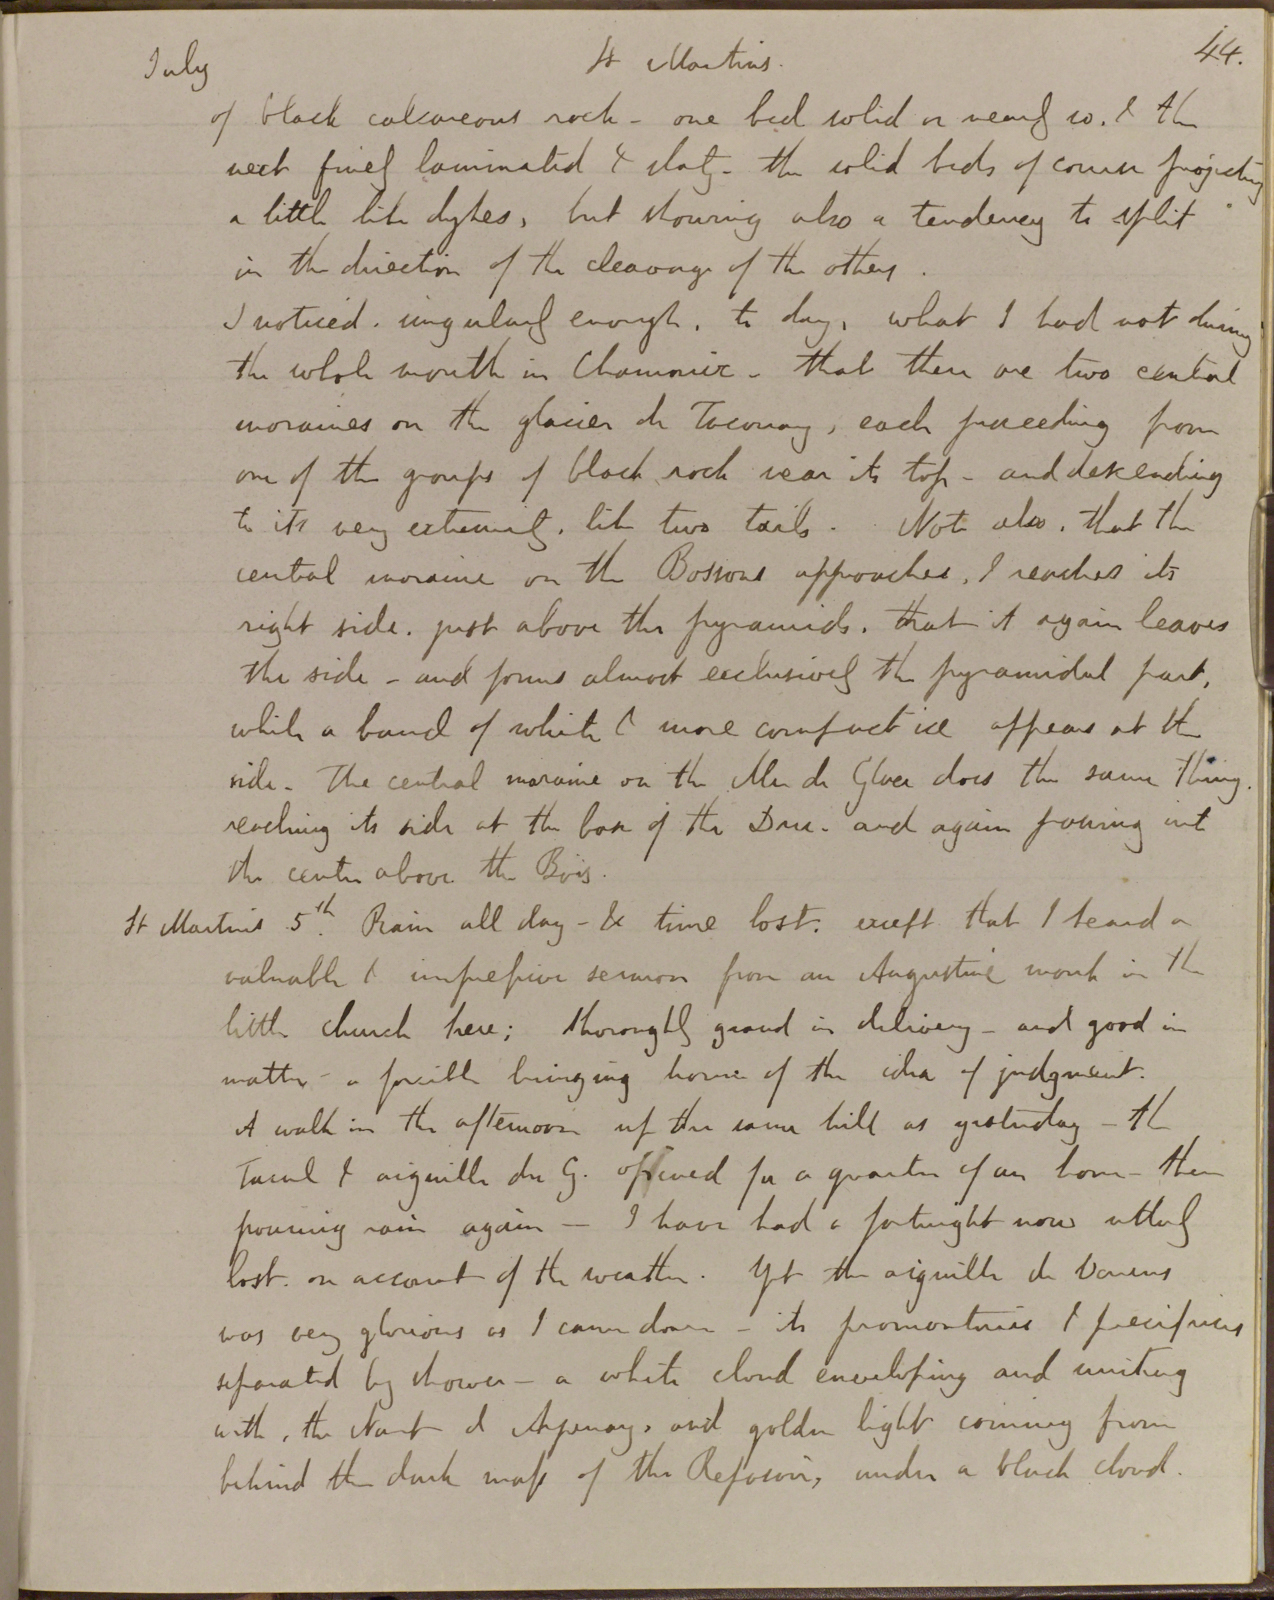 July
St Martins.
44.
of black calcareous rock - one bed solid or nearly so. & the
next finely laminated & slaty - the solid beds of course projecting
a little like dykes, but showing also a tendency to split
in the direction of the cleavage of the others.
I noticed. singularly enough, to day, what I had not during
the whole month in Chamonix - that there are two central
moraines on the glacier de Taconay, each proceeding from
one of the groups of black rock near its top - and descending
to its very extremity, like two tails. Note also, that the
central moraine on the Bossons approaches, & reaches its
right side. just above the pyramids, that it again leaves
the side - and forms almost exclusively the pyramidal part,
while a band of white & more compact ice appears at the
side. The central moraine on the Mer de Glace does the same thing.
reaching its side at the base of the Dru. and again pouring into
the centre above the Bois.
St Martins 5th. Rain all day - & time lost. except that I heard a
valuable & impressive sermon from an Augustine monk in the
little church here; thoroughly grand in delivery - and good in
matter - a forcible bringing home of the idea of judgment.
A walk in the afternoon up the same hill as yesterday - the
Tacul & aiguille du G. opened for a quarter of an hour - then
pouring rain again — I have had a fortnight now utterly
lost. on account of the weather. Yet the aiguille de Varens
was very glorious as I came down - its promontories & precipices
separated by shower - a white cloud enveloping and uniting
with, the Nant d Arpenay, and golden light coming from
behind the dark mass of the Reposoir, under a black cloud.